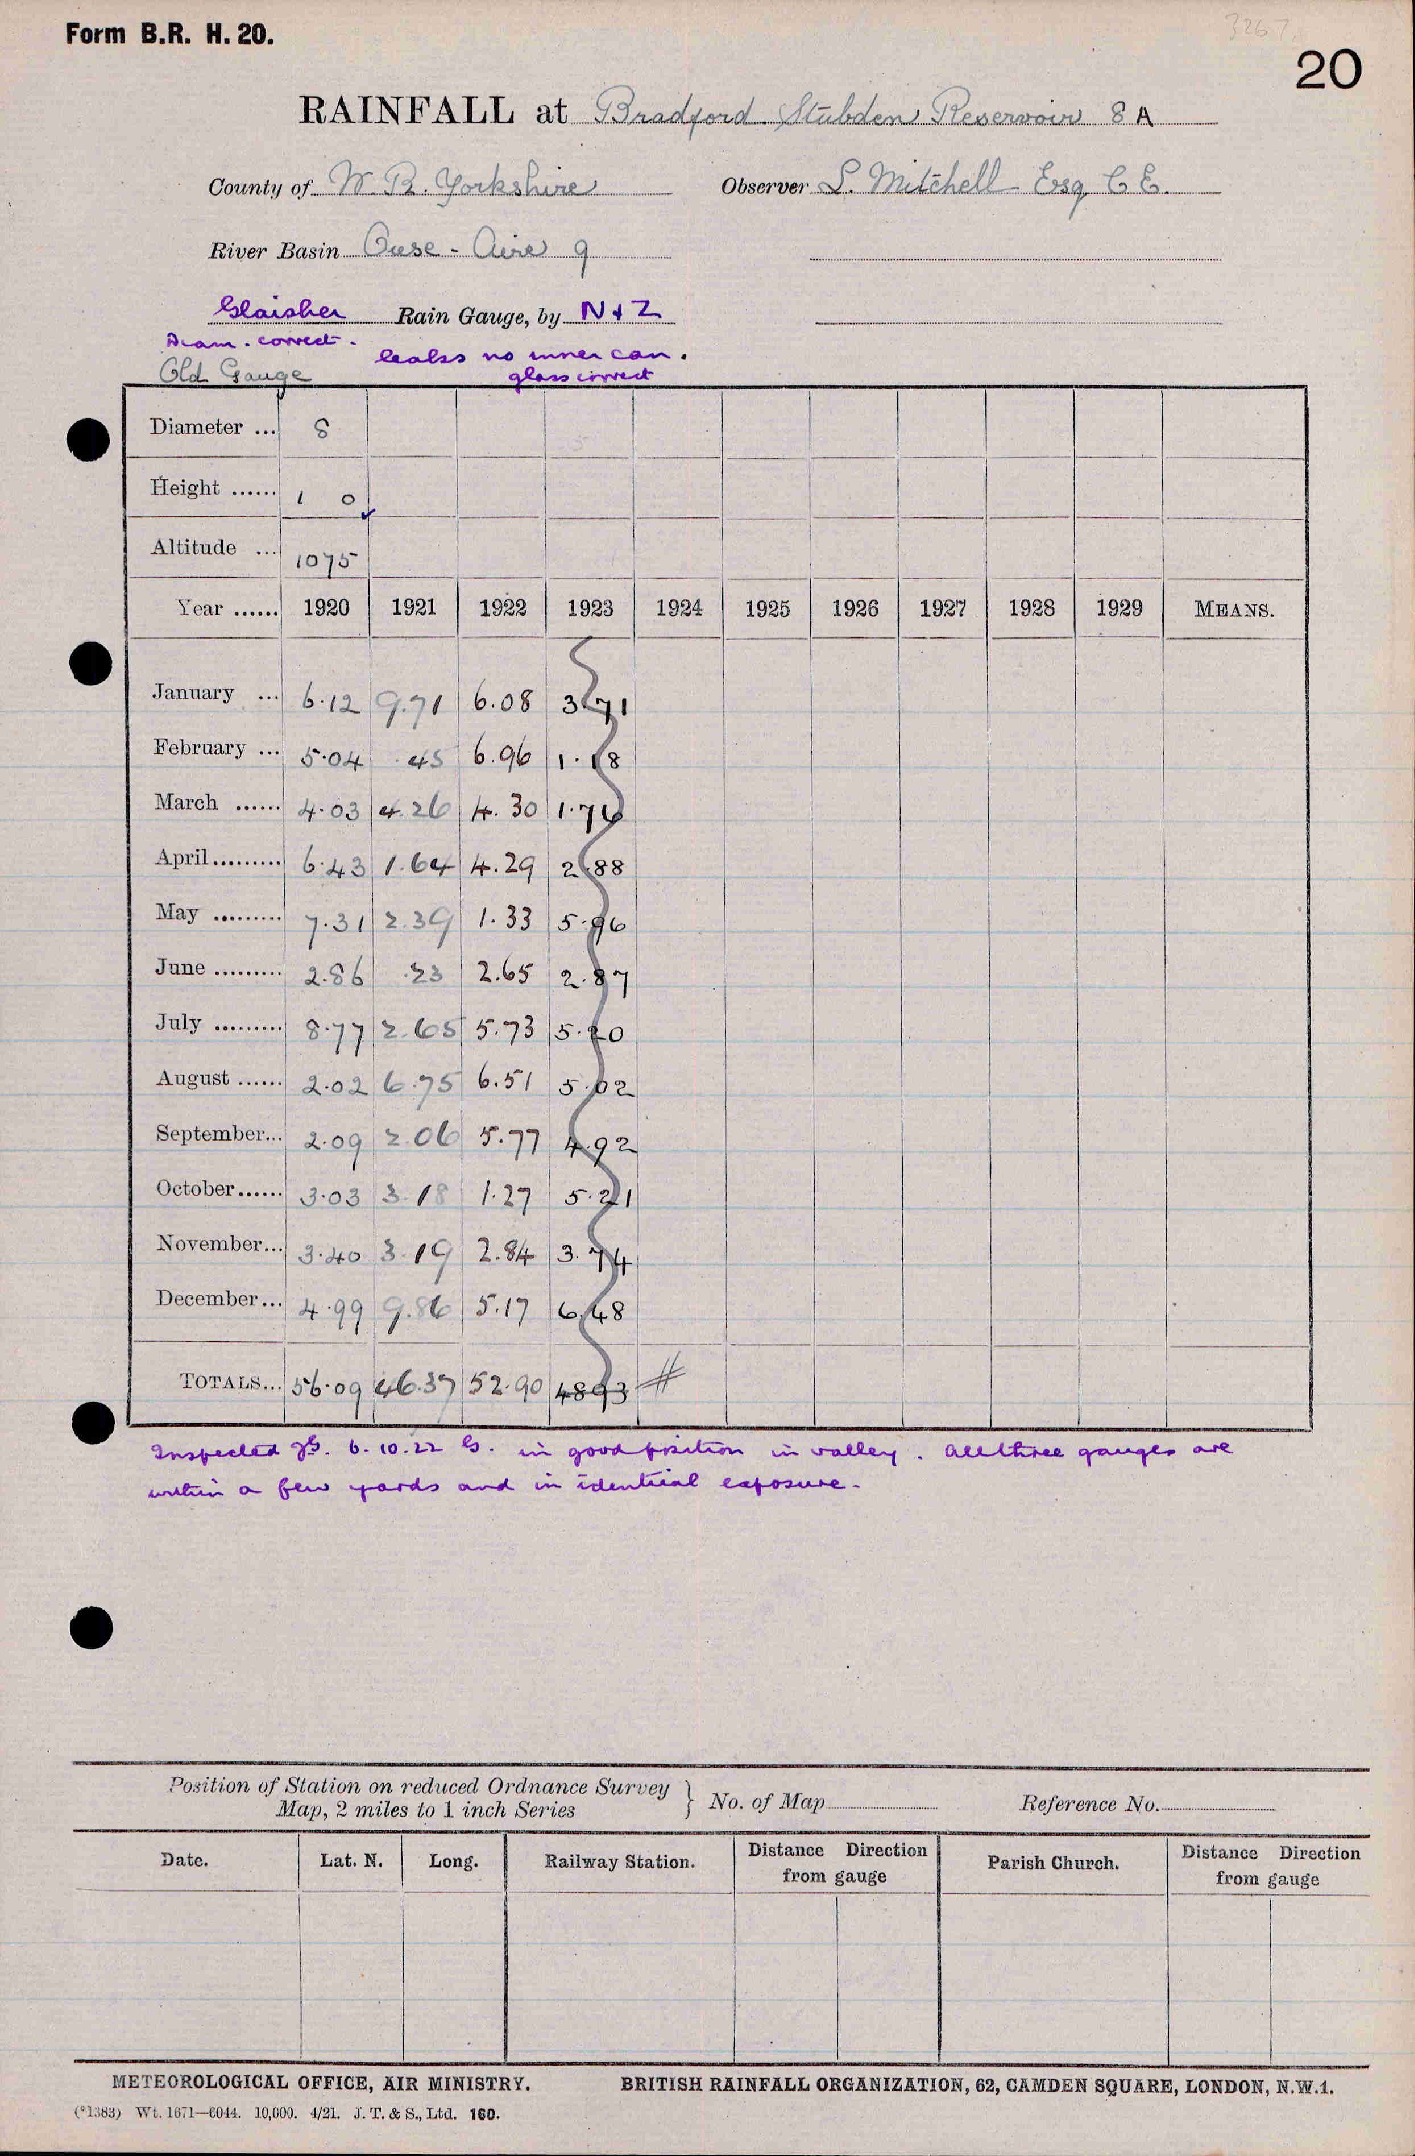 3267
Form B.R. H. 20.
20
RAINFALL at Bradford Stubden Reservoir 8 A
County of W. R. Yorkshire Observer L. Mitchell Esq C E.
River Basin Ouse - Aire 9
Glaisher Rain Gauge, by N & Z
Diam. correct. leaks no inner can.
Old Gauge glass correct
Diameter ... 8
Height ...... 1 0
Altitude ... 1075
Year ...... 1920 1921 1922 1923 1924 1925 1926 1927 1928 1929 MEANS.
January ... 6.12 9.71 6.08 3.71
February ... 5.04 .45 6.96 1.18
March ...... 4.03 4.26 4.30 1.76
April......... 6.43 1.64 4.29 2.88
May ......... 7.31 2.39 1.33 5.96
June ......... 2.86 .23 2.65 2.87
July ......... 8.77 2.65 5.73 5.20
August ...... 2.02 6.75 6.51 5.02
September... 2.09 2.06 5.77 4.92
October...... 3.03 3.18 1.27 5.21
November... 3.40 3.19 2.84 3.74
December... 4.99 9.86 5.17 6.48
TOTALS... 56.09 46.37 52.90 48.93 #
Inspected 6.10.22 G. in good position in valley. All three gauges are
within a few yards and in identical exposure.
Position of Station on reduced Ordnance Survey
Map, 2 miles to 1 inch Series } No. of Map Reference No.
Date. Lat. N. Long. Railway Station. Distance Direction from gauge Parish Church. Distance Direction from gauge
METEOROLOGICAL OFFICE, AIR MINISTRY. BRITISH RAINFALL ORGANIZATION, 62, CAMDEN SQUARE, LONDON, N.W.1.
(*1383) Wt. 1671—6044. 10,000. 4/21. J. T. & S., Ltd. 160.